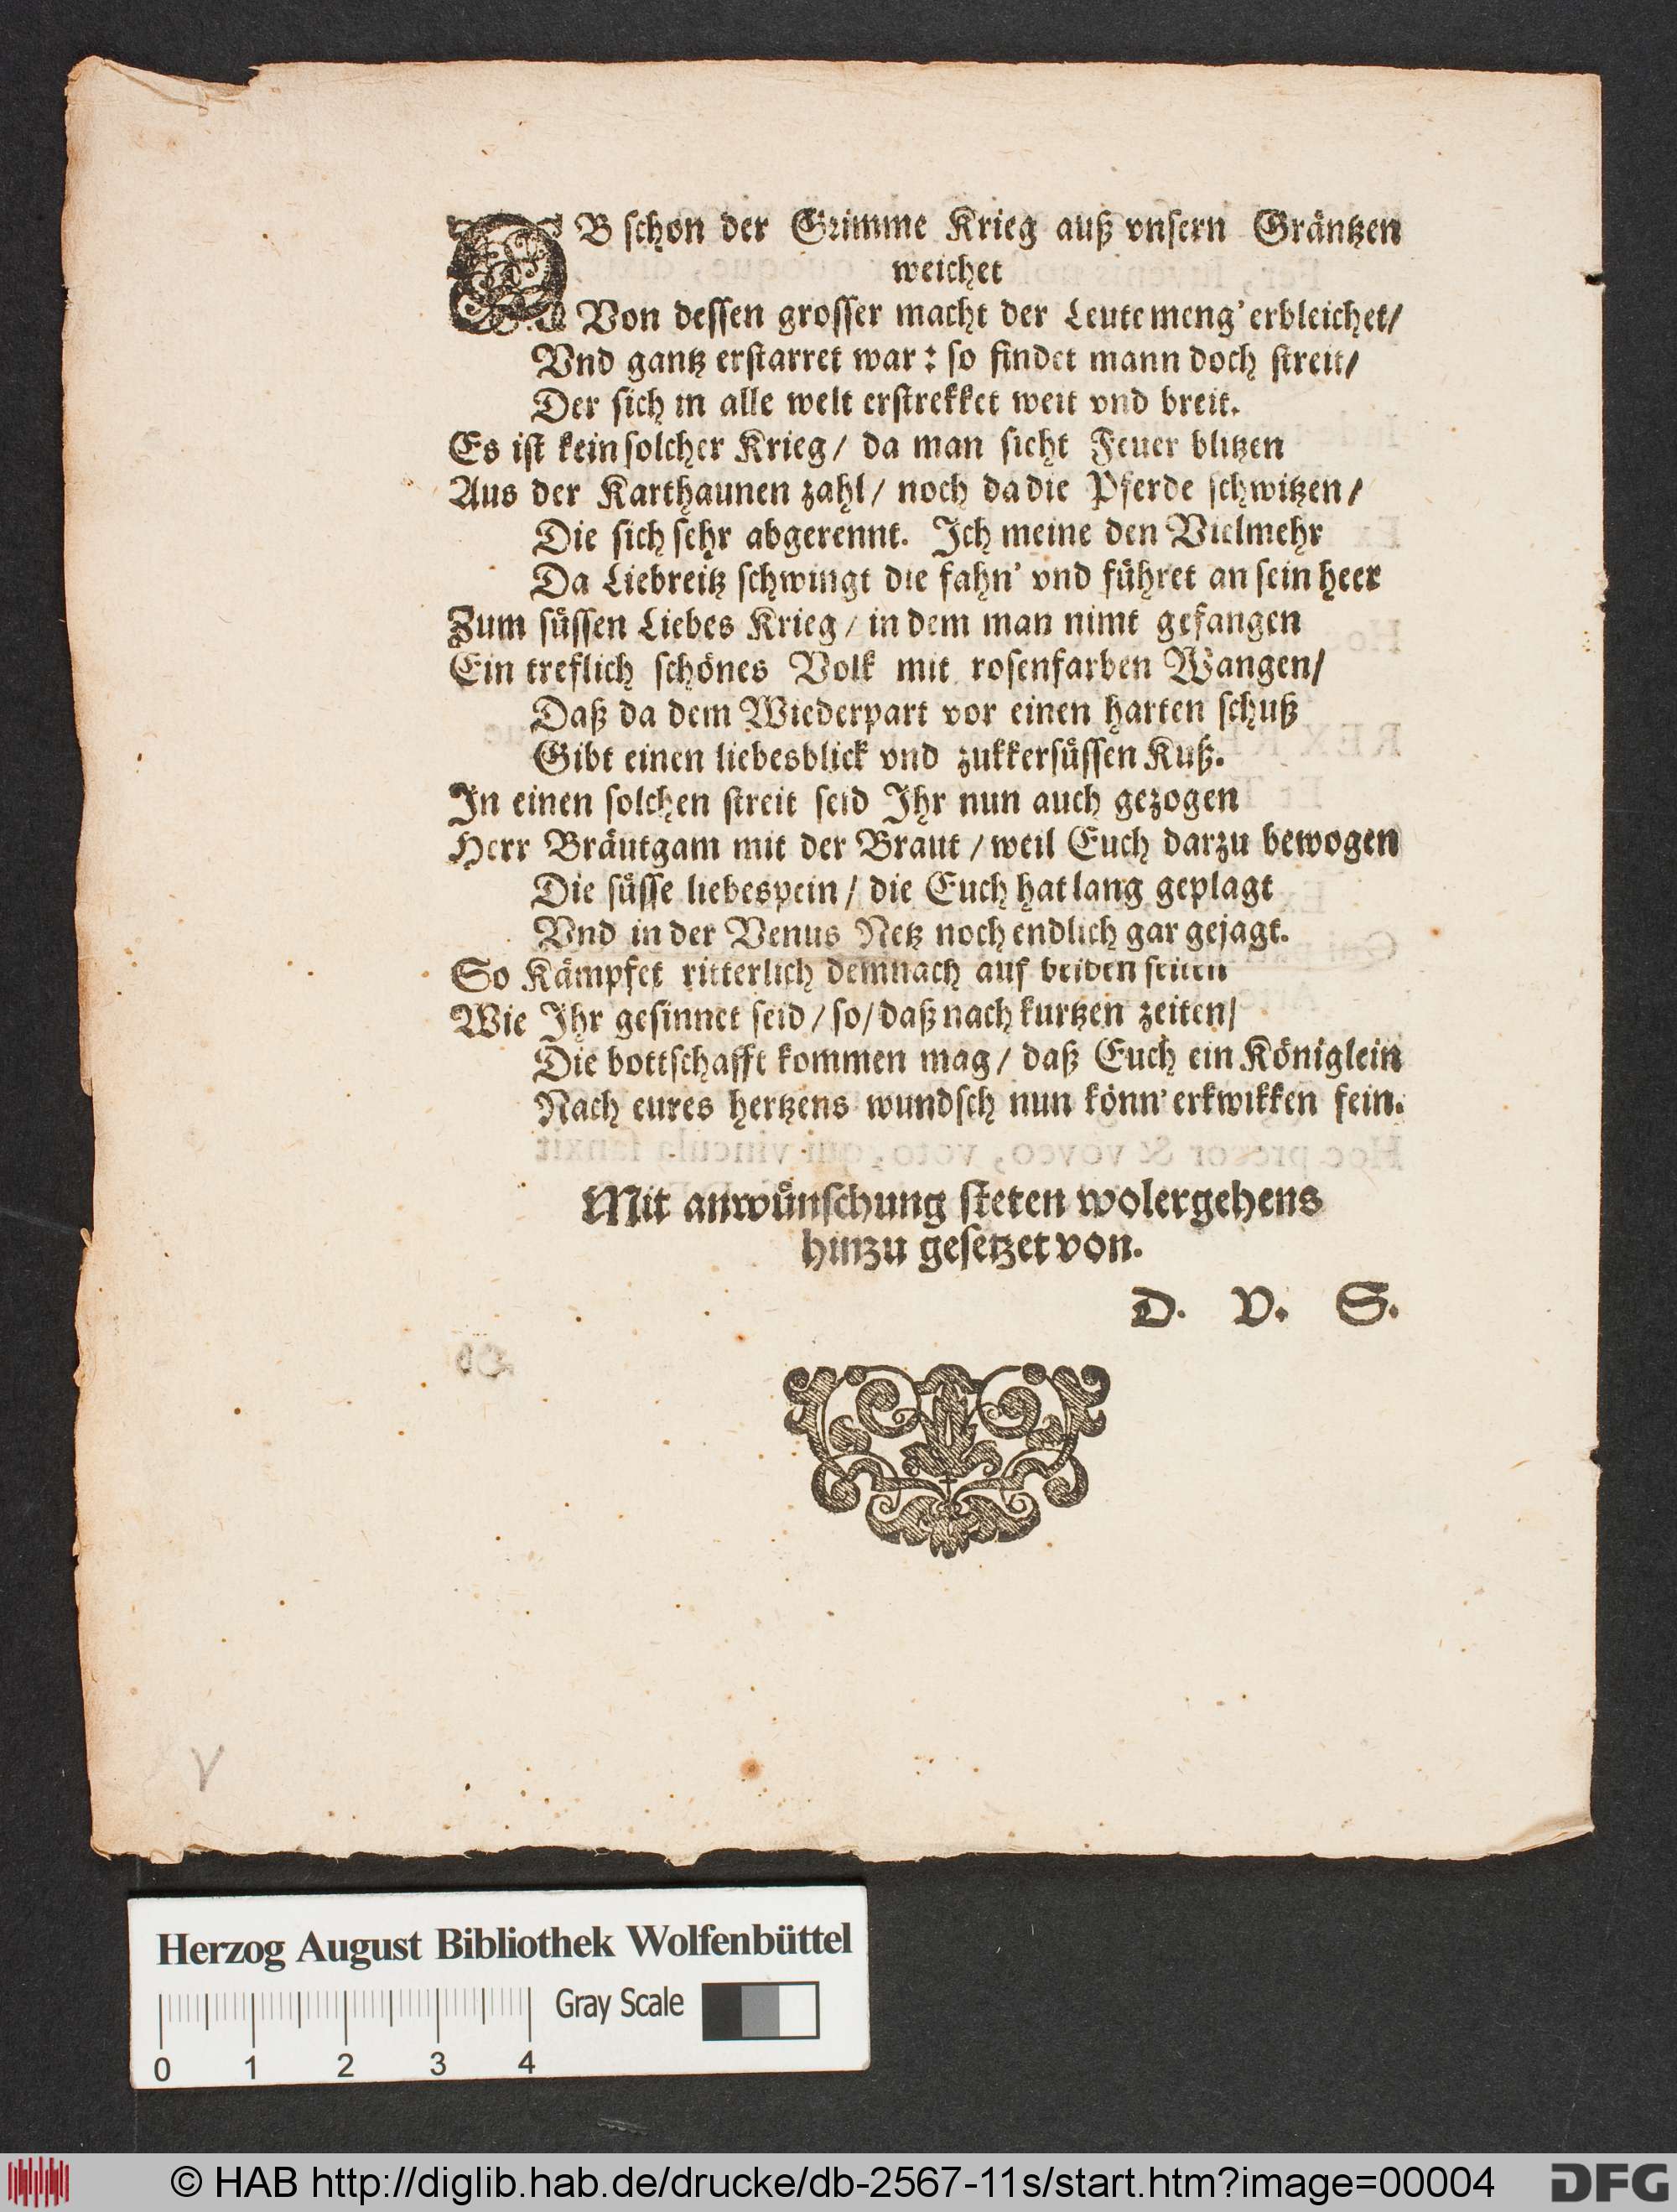 OB ſchon der Grimme Krieg auß vnſern Gräntzen
weichet
Von deſſen groſſer macht der Leute meng' erbleichet/
Vnd gantz erſtarret war: ſo findet mann doch ſtreit/
Der ſich in alle welt erſtrekket weit vnd breit.
Es iſt kein ſolcher Krieg/ da man ſicht Feuer blitzen
Aus der Karthaunen zahl/ noch da die Pferde ſchwitzen/
Die ſich ſehr abgerennt. Ich meine den Vielmehr
Da Liebreitz ſchwingt die fahn' vnd führet an ſein heer
Zum ſüſſen Liebes Krieg/ in dem man nimt gefangen
Ein treflich ſchönes Volk mit roſenfarben Wangen/
Daß da dem Wiederpart vor einen harten ſchuß
Gibt einen liebesblick vnd zukkerſüſſen Kuß.
In einen ſolchen ſtreit ſeid Ihr nun auch gezogen
Herr Bräutgam mit der Braut/ weil Euch darzu bewogen
Die ſüſſe liebespein/ die Euch hat lang geplagt
Vnd in der Venus Netz noch endlich gar gejagt.
So Kämpfet ritterlich demnach auf beiden ſeiten
Wie Ihr geſinnet ſeid/ ſo/ daß nach kurtzen zeiten/
Die bottſchafft kommen mag/ daß Euch ein Königlein
Nach eures hertzens wundſch nun könn' erkwikken fein.
Mit anwünſchung ſteten wolergehens
hinzu geſetzet von.
D. V. S.
V
Herzog August Bibliothek Wolfenbüttel
Gray Scale
0 1 2 3 4
© HAB http://diglib.hab.de/drucke/db-2567-11s/start.htm?image=00004
DFG